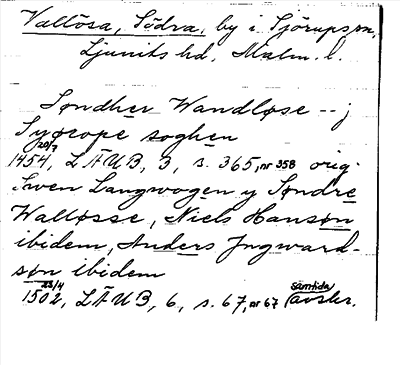 Vallösa, Södra, by i Sjörups sn,
Ljunits hd, Malm. l.
Søndher Wandløse -- j
Syøropе soghen
20/7 1454, LÄUB, 3, s. 365, nr 358 orig.
Swen Langwogen y Søndre
Walløsse, Niels Hansøn
ibidem, Anders Jngward-
søn ibidem
23/4 1502, LÄUB, 6, s. 67, nr 67 samtida avskr.